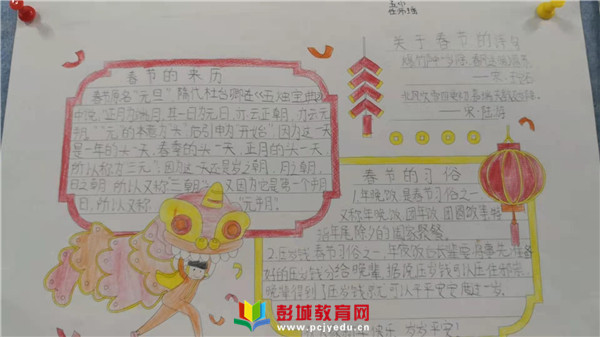 春节的来历
春节原名“元旦”隋代杜台卿在《五烛宝典》
中说“正月为端月，其一日为元日，亦云正朝，亦云元
朔”“元”的本意为“头”后引申为“开始”因为这一天
是一年的头一天，春季的头一天，正月的头一天，
所以称为“三元”；因为这一天还是岁之朝，月之朝，
日之朝，所以又称“三朝”；又因为它是第一个朔
日，所以又称“元朔”
关于春节的诗句
爆竹声中一岁除，春风送暖
——宋·王安石
——宋·陆游
春节的习俗
1.年晚饭，是春节习俗之一
又称年晚饭、团年饭、团圆饭等，特
指年尾除夕的阖家聚餐。
2.压岁钱，春节习俗之一，年夜饭后长辈要将事先准备
好的压岁钱分给晚辈，据说压岁钱可以压住邪祟，
晚辈得到压岁钱就可以平平安安度过一岁。
快乐，平平安安！
彭城教育网
www.pcjyedu.cn